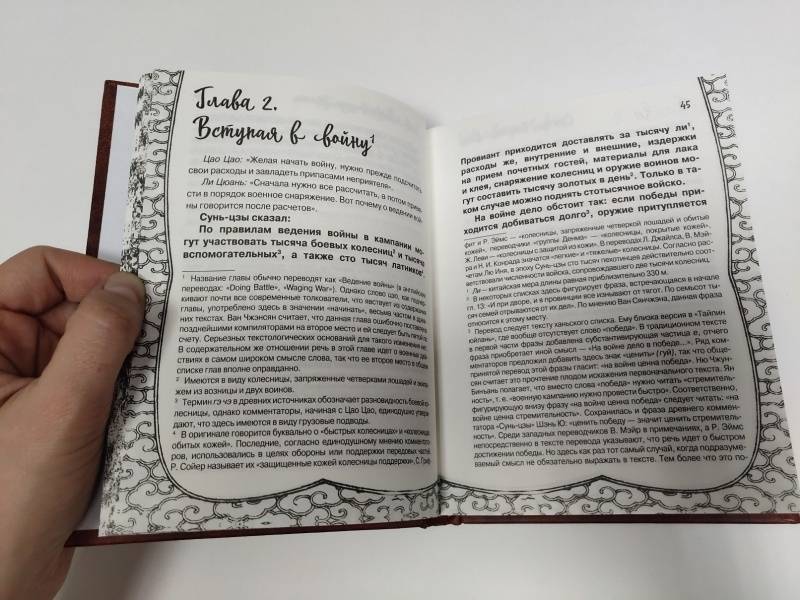 Глава 2.
Вступая в войну¹
Цао Цао: «Желая начать войну, нужно прежде подсчитать
свои расходы и завладеть припасами неприятеля».
Ли Цюань: «Сначала нужно все рассчитать, а потом приве-
сти в порядок военное снаряжение. Вот почему о ведении вой-
ны говорится после расчетов».
Сунь-цзы сказал:
По правилам ведения войны в кампании мо-
гут участвовать тысяча боевых колесниц² и тысяча
вспомогательных³, а также сто тысяч латников⁴.
¹ Название главы обычно переводят как «Ведение войны» (в английских
переводах: «Doing Battle», «Waging War»). Однако слово цзо, как подчер-
кивают почти все современные толкователи, что явствует из содержания
главы, употреблено здесь в значении «начинать», весьма частом в древ-
них текстах. Ван Чжэнсян считает, что данная глава ошибочно поставлена
позднейшими компиляторами на второе место и ей следует быть пятой по
счету. Серьезных текстологических оснований для такого изменения нет.
В содержательном же отношении речь в этой главе идет о военных дей-
ствиях в самом широком смысле слова, так что ее второе место в общем
списке глав вполне оправданно.
² Имеются в виду колесницы, запряженные четверками лошадей и экипа-
жем из возницы и двух воинов.
³ Термин гэ чэ в древних источниках обозначает разновидность боевой ко-
лесницы, однако комментаторы, начиная с Цао Цао, единодушно утвержда-
ют, что здесь имеются в виду грузовые подводы.
⁴ В оригинале говорится буквально о «быстрых колесницах» и «колесницах,
обитых кожей». Последние, согласно единодушному мнению коммента-
оров, использовались в целях обороны или поддержки передовых частей.
Р. Сойер называет их «защищенные кожей колесницы поддержки», С. Гриф-
45
Провиант приходится доставлять за тысячу ли¹,
расходы же, внутренние и внешние, издержки
на прием почетных гостей, материалы для лака
и клея, снаряжение колесниц и оружие воинов мо-
гут составить тысячу золотых в день². Только в та-
ком случае можно поднять стотысячное войско.
На войне дело обстоит так: если победы при-
ходится добиваться долго³, оружие притупляется
фит и Р. Эймс — «колесницы, запряженные четверкой лошадей и обитые
кожей», переводчики «группы Денма» — «колесницы, покрытые кожей»,
Ж. Леви — «колесницы с защитой из кожи». В переводах Л. Джайлса, В. Мэй-
ра и Н. И. Конрада значатся «легкие» и «тяжелые» колесницы. Согласно рас-
четам Лю Иня, в эпоху Сунь-цзы сто тысяч пехотинцев действительно соот-
ветствовали численности войска, сопровождавшего две тысячи колесниц.
¹ Ли — китайская мера длины, равная приблизительно 330 м.
² В некоторых списках здесь фигурирует фраза, встречающаяся в начале
гл. 13: «И при дворе, и в провинции все изнывают от тягот. По семьсот ты-
сяч семей отрываются от их дел». По мнению Ван Сянчжэна, данная фраза
относится к этому месту.
³ Перевод следует тексту ханьского списка. Ему близка версия в «Тайпин
юйлань», где вообще отсутствует слово «победа». В традиционном тексте
в первой части фразы добавлена субстантивирующая частица е, отчего
фраза приобретает иной смысл — «На войне дело в победе...». Ряд ком-
ментаторов предложил добавить здесь знак «ценить» (гуй), так что обще-
принятой перевод этой фразы гласит: «на войне ценна победа». Ню Чжун-
сян считает это прочтение плодом искажения первоначального текста. Ян
Бинъань полагает, что вместо слова «победа» нужно читать «стремитель-
ность», т. е. «военную кампанию нужно провести быстро». Соответственно,
фигурирующую внизу фразу «на войне ценна победа» следует читать: «на
войне ценна стремительность». Сохранилась и фраза древнего коммен-
татора «Сунь-цзы» Шэнь Ю: «ценить победу — значит ценить стремитель-
ность». Среди западных переводчиков В. Мэйр в примечаниях, а Р. Эймс
непосредственно в тексте перевода указывают, что речь идет о быстром
достижении победы. Но здесь как раз тот самый случай, когда подразуме-
ваемый смысл не обязательно выражать в тексте. Тем более что это по-